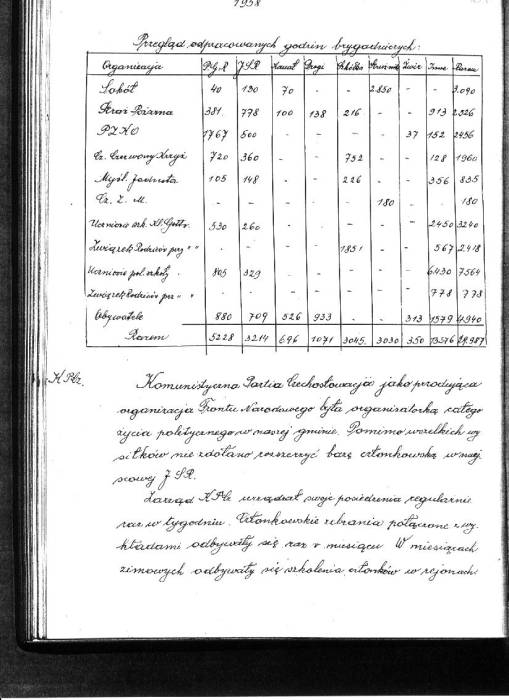 1958
Przegląd odpracowanych godzin brygadniczych:
Organizacja P.G.R. J.S.R. Kanał Drogi Szkółka Inne Razem
Sokół 40 130 70 - - 2.850 - - 3.090
Straż Pożarna 381 778 100 138 216 - - 913 2.526
PZKO 1767 500 - - - - 37 152 2456
Cz. Czerwony Krzyż 720 360 - - 752 - - 128 1960
Myśl. Jednota 105 148 - - 226 - - 356 835
Cz. Z. M. - - - - - 180 - - 180
Uczniowie szk. Kl. Gottw. 530 260 - - - - - 2450 3240
Związek Rodziców przy " " - - - - 1851 - - 567 2.418
Uczniowie pol. szkoły 805 329 - - - - - 6430 7564
Związek Rodziców prz " " - - - - - - - 778 778
Obywatele 880 709 526 933 - - 313 1579 4.940
Razem 5228 3214 696 1071 3045 3030 350 13576 29.987
K.P.Cz. Komunistyczna Partia Czechosłowacji jako przodująca
organizacja Frontu Narodowego była organizatorką całego
życia politycznego w naszej gminie. Pomimo wszelkich wy
siłków nie zdołano rozszerzyć bazę członkowską w miej
scowej J.S.R.
Zarząd K.P.Cz urządzał swoje posiedzenia regularnie
raz w tygodniu. Członkowskie zebrania połączone z wy
kładami odbywały się raz v miesiącu W miesiącach
zimowych odbywały się szkolenia członków w rejonach